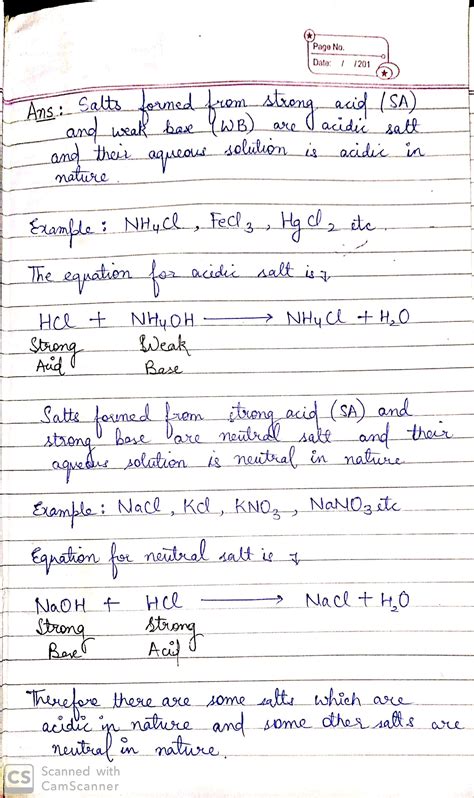 Page No.
Date: / /201
Ans: Salts formed from strong acid (SA)
and weak base (WB) are acidic salt
and their aqueous solution is acidic in
nature.
Example: NH4Cl, FeCl3, HgCl2 etc.
The equation for acidic salt is
HCl + NH4OH → NH4Cl + H2O
Strong Weak
Acid Base
Salts formed from strong acid (SA) and
strong base are neutral salt and their
aqueous solution is neutral in nature
Example: NaCl, KCl, KNO3, NaNO3 etc
Equation for neutral salt is
NaOH + HCl → NaCl + H2O
Strong Strong
Base Acid
Therefore there are some salts which are
acidic in nature and some other salts are
neutral in nature.
CS Scanned with
CamScanner